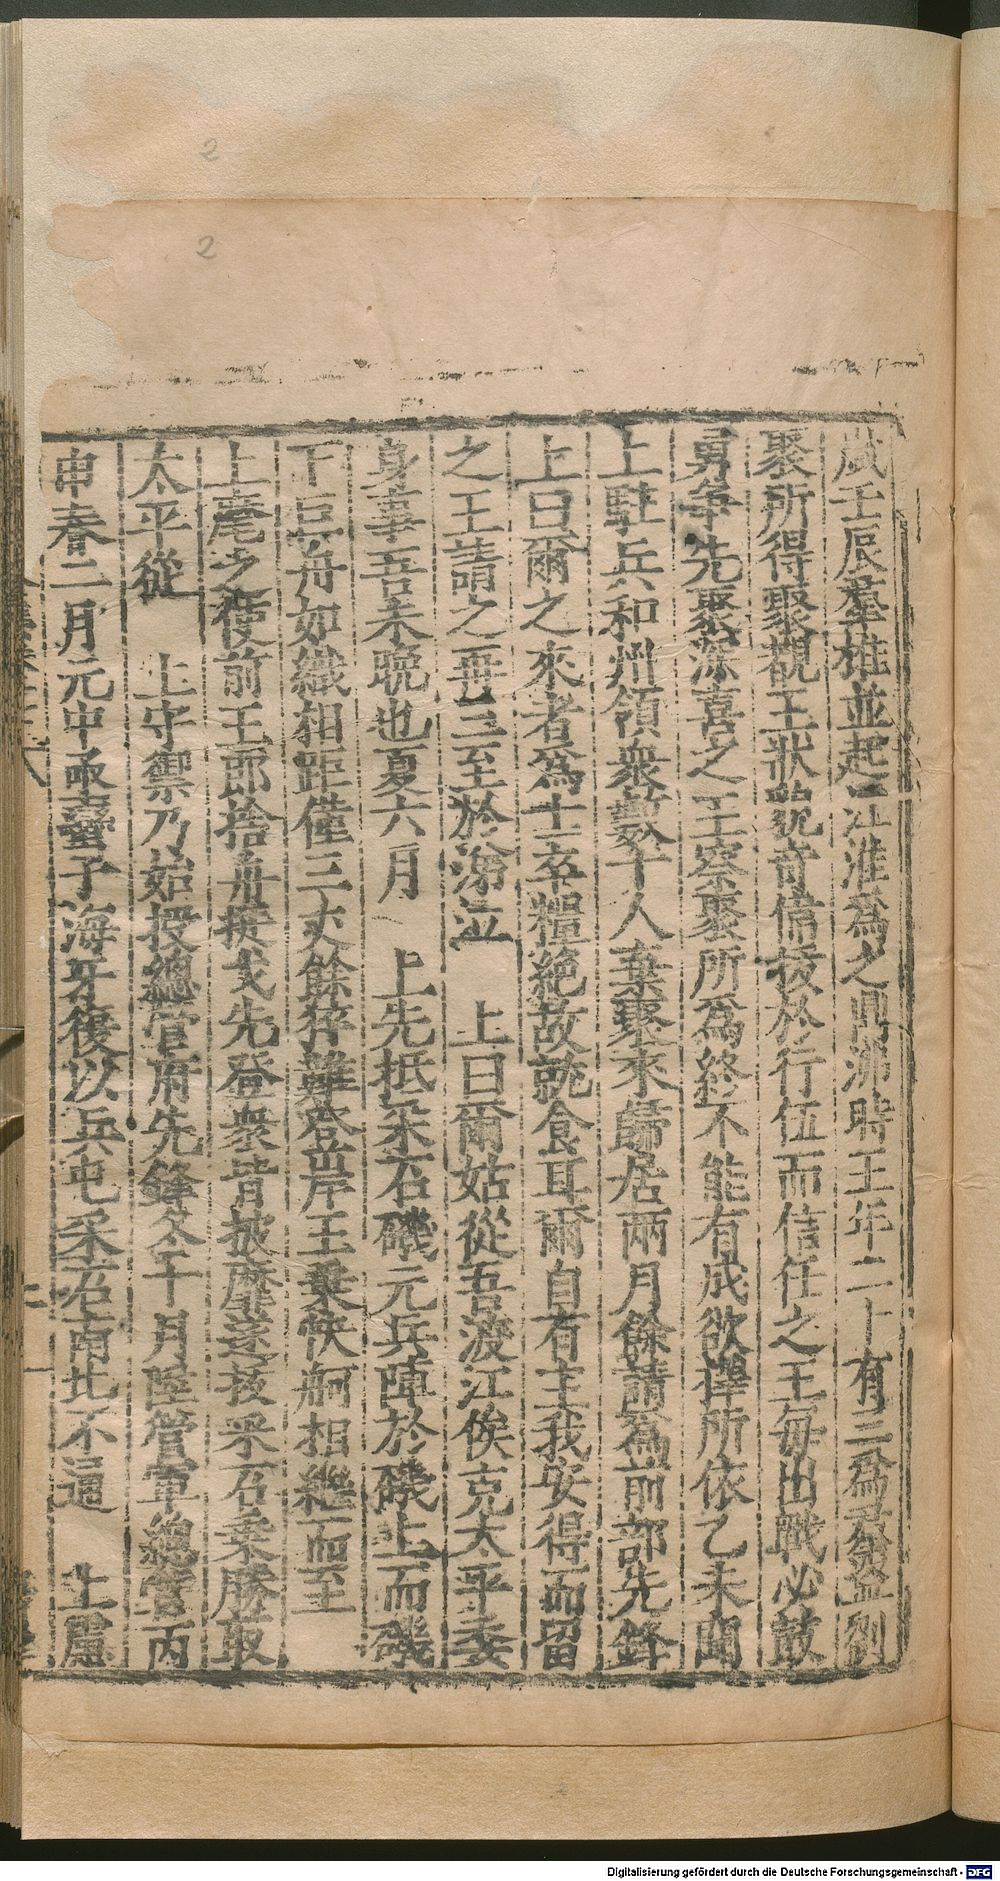 歲壬辰羣雄並起江淮爲之鼎沸時王年二十有三爲羣盗劉
聚所得聚觀王狀貌奇偉拔於行伍而信任之王每出戰必鼓
勇争先聚深喜之王察聚所爲終不能有成欲擇所依乙未聞
上駐兵和州領衆數十人棄聚來歸居兩月餘請爲前部先鋒
上曰爾之來者爲士卒糧絶故就食耳爾自有主我安得而留
之王請之再三至於涕泣　上曰爾姑從吾渡江俟克太平委
身事吾未晚也夏六月　上先抵采石磯元兵陣於磯上而磯
下巨舟如織相距僅三丈餘猝難登岸王乗快舸相繼而至
上麾之使前王即捨舟援戈先登衆皆披靡遂拔采石乗勝取
太平從　上守禦乃始授總管府先鋒冬十月陞管軍總管丙
申春二月元中丞蠻子海牙復以兵屯采石南北不通　上慮
2
2
Digitalisierung gefördert durch die Deutsche Forschungsgemeinschaft - DFG